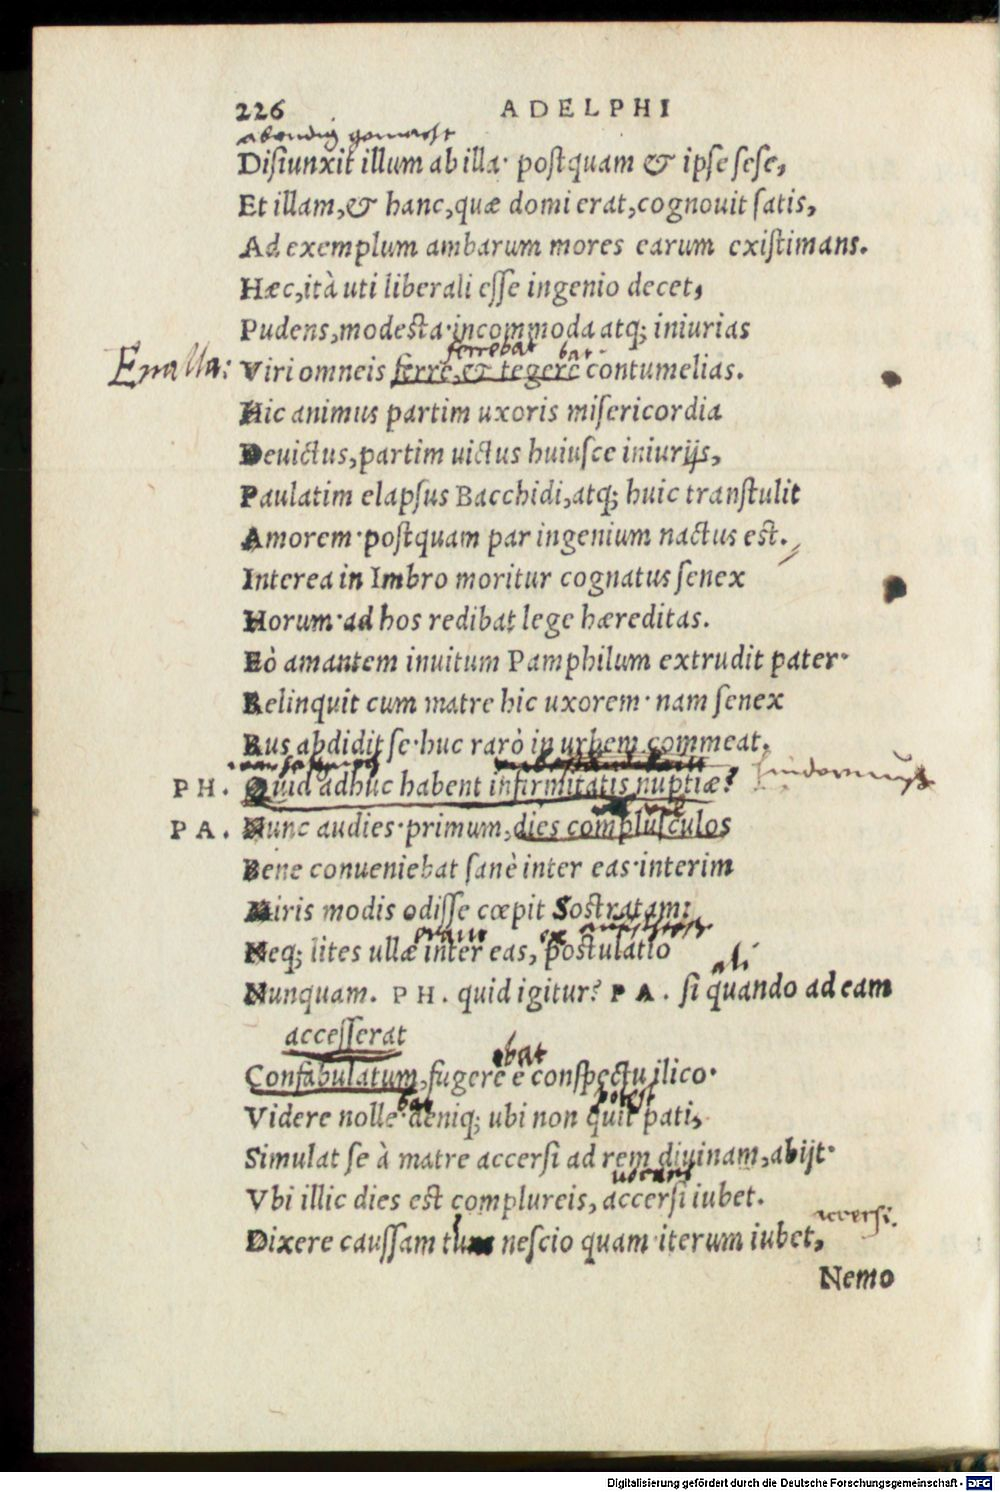 226 ADELPHI
Disiunxit illum ab illa· postquam & ipse sese,
Et illam, & hanc, quæ domi erat, cognouit satis,
Ad exemplum ambarum mores earum existimans.
Hæc, ità uti liberali esse ingenio decet,
Pudens, modesta· incommoda atq; iniurias
ferrebat bat
Enalla: Viri omneis ferre, & tegere contumelias.
Hic animus partim uxoris misericordia
Deuictus, partim uictus huiusce iniurijs,
Paulatim elapsus Bacchidi, atq; huic transtulit
Amorem· postquam par ingenium nactus est.
Interea in Imbro moritur cognatus senex
Horum· ad hos redibat lege hæreditas.
Eò amantem inuitum Pamphilum extrudit pater·
Relinquit cum matre hic uxorem· nam senex
Rus abdidit se· huc rarò in urbem commeat.
PH. Quid adhuc habent infirmitatis nuptiæ?
PA. Nunc audies· primum, dies complusculos
Bene conueniebat sanè inter eas· interim
Miris modis odisse cœpit Sostratam:
Neq; lites ullæ inter eas, postulatio
ali
Nunquam. PH. quid igitur? PA. si quando ad eam
accesserat
bat
Confabulatum, fugere è conspectu ilico·
bat potest
Videre nolle· deniq; ubi non quit pati,
Simulat se à matre accersi ad rem diuinam, abijt·
Vbi illic dies est complureis, accersi iubet.
accersi.
Dixere caussam tum nescio quam· iterum iubet,
Nemo
Digitalisierung gefördert durch die Deutsche Forschungsgemeinschaft - DFG